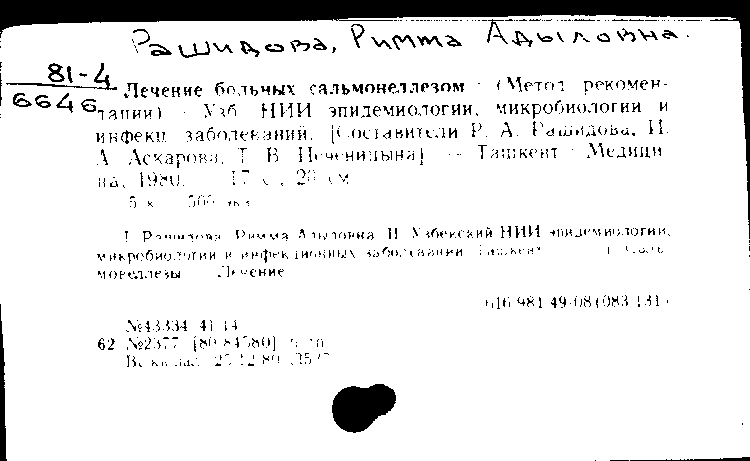 Рашидова, Римма Адыловна.
81-4
6646
Лечение больных сальмонеллезом : (Метод рекомен-
тации) Узб НИИ эпидемиологии, микробиологии и
инфекц заболеваний. [Составители Р. А. Рашидова, И.
А Аскарова, Т. В Печеницына] — Ташкент : Медици
на, 1980. 17 с , 20 см
5 к 500 экз
I Рашидова, Римма Адыловна II Узбекский НИИ эпидемиологии,
микробиологии и инфекционных заболеваний Ташкент 1 Саль
монеллезы Лечение
616 981 49-08(083 131)
№43334 41 14
62 №2377 [80-84580]